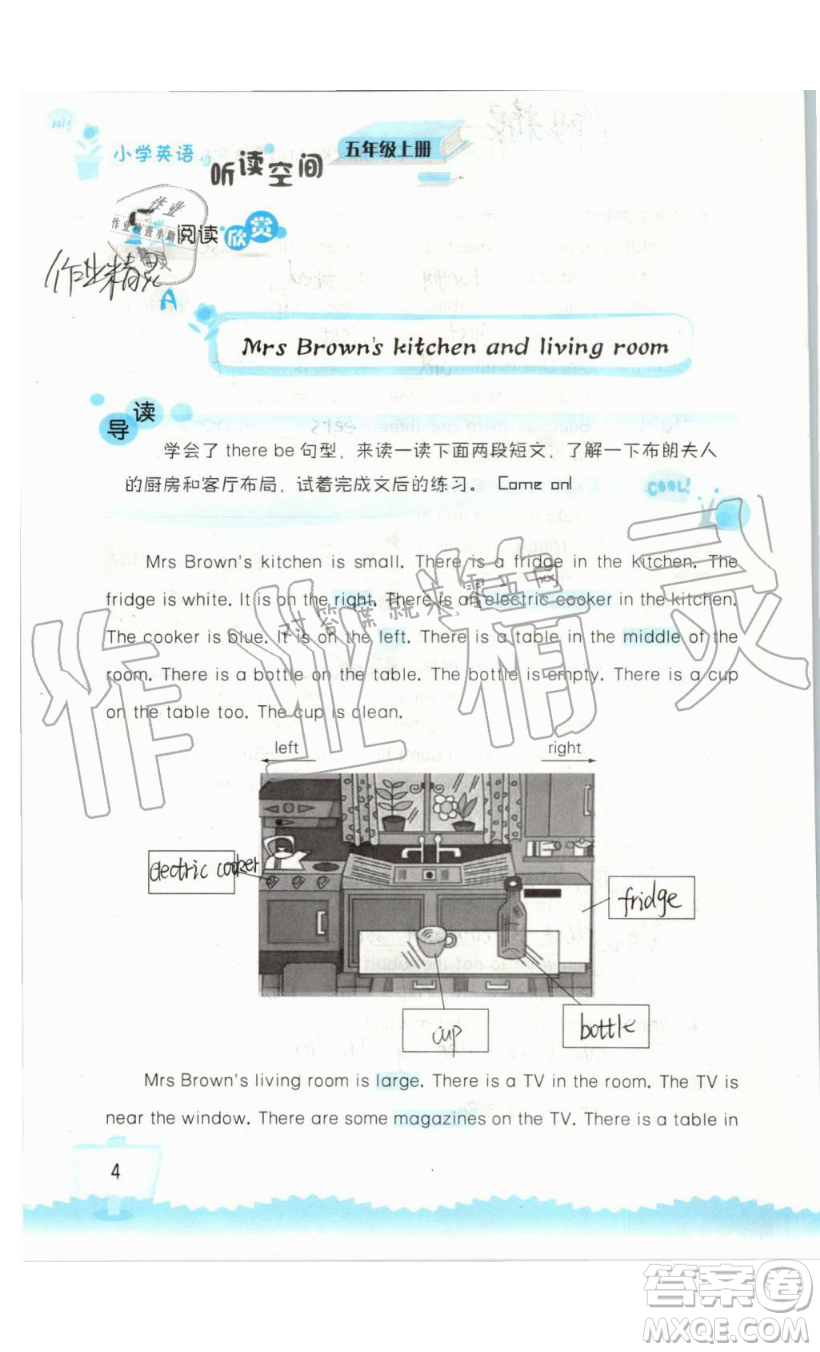 小学英语
听读空间
五年级上册
作业
作业检查小组
阅读欣赏
作业精灵
A
Mrs Brown's kitchen and living room
导读
学会了 there be 句型，来读一读下面两段短文，了解一下布朗夫人
的厨房和客厅布局，试着完成文后的练习。 Come on!
COOL!
Mrs Brown's kitchen is small. There is a fridge in the kitchen. The
fridge is white. It is on the right. There is an electric cooker in the kitchen.
The cooker is blue. It is on the left. There is a table in the middle of the
room. There is a bottle on the table. The bottle is empty. There is a cup
on the table too. The cup is clean.
作业精灵
left right
electric cooker
fridge
cup
bottle
Mrs Brown's living room is large. There is a TV in the room. The TV is
near the window. There are some magazines on the TV. There is a table in
4
答案圈
MXQE.COM